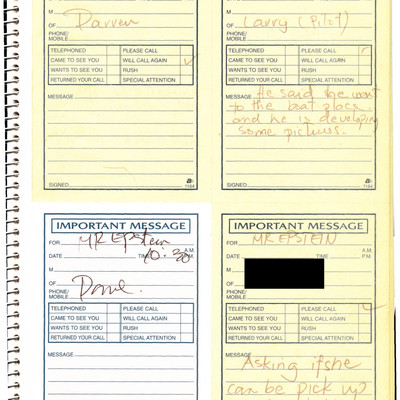 M
OF Darren
PHONE/
MOBILE
TELEPHONED PLEASE CALL
CAME TO SEE YOU WILL CALL AGAIN ✓
WANTS TO SEE YOU RUSH
RETURNED YOUR CALL SPECIAL ATTENTION
MESSAGE
SIGNED 1184
M
OF Larry (Pilot)
PHONE/
MOBILE
TELEPHONED PLEASE CALL
CAME TO SEE YOU WILL CALL AGAIN
WANTS TO SEE YOU RUSH
RETURNED YOUR CALL SPECIAL ATTENTION
MESSAGE He said he went
to the boat place
and he is developing
some pictures.
SIGNED 1184
IMPORTANT MESSAGE
FOR Mr Epstein
DATE TIME 10:30 A.M.
P.M.
M
OF Dave.
PHONE/
MOBILE
TELEPHONED PLEASE CALL
CAME TO SEE YOU WILL CALL AGAIN
WANTS TO SEE YOU RUSH
RETURNED YOUR CALL SPECIAL ATTENTION
MESSAGE
IMPORTANT MESSAGE
FOR MR EPSTEIN
DATE TIME A.M.
P.M.
M
OF
PHONE/
MOBILE
TELEPHONED PLEASE CALL ✓
CAME TO SEE YOU WILL CALL AGAIN
WANTS TO SEE YOU RUSH
RETURNED YOUR CALL SPECIAL ATTENTION
MESSAGE
Asking if she
can be pick up